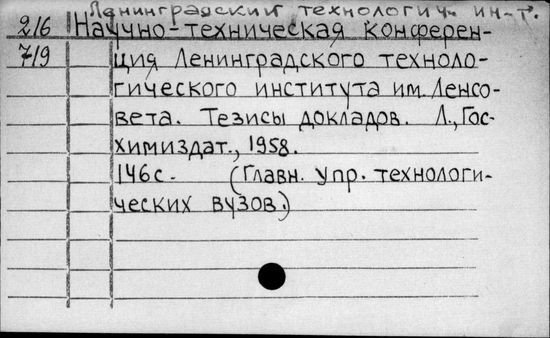 Ленинградский технологич. ин-т.
216 Научно-техническая конферен-
719 ция Ленинградского техноло-
гического института им. Ленсо-
вета. Тезисы докладов. Л., Гос-
химиздат., 1958.
146с. (Главн. упр. технологи-
ческих вузов.)